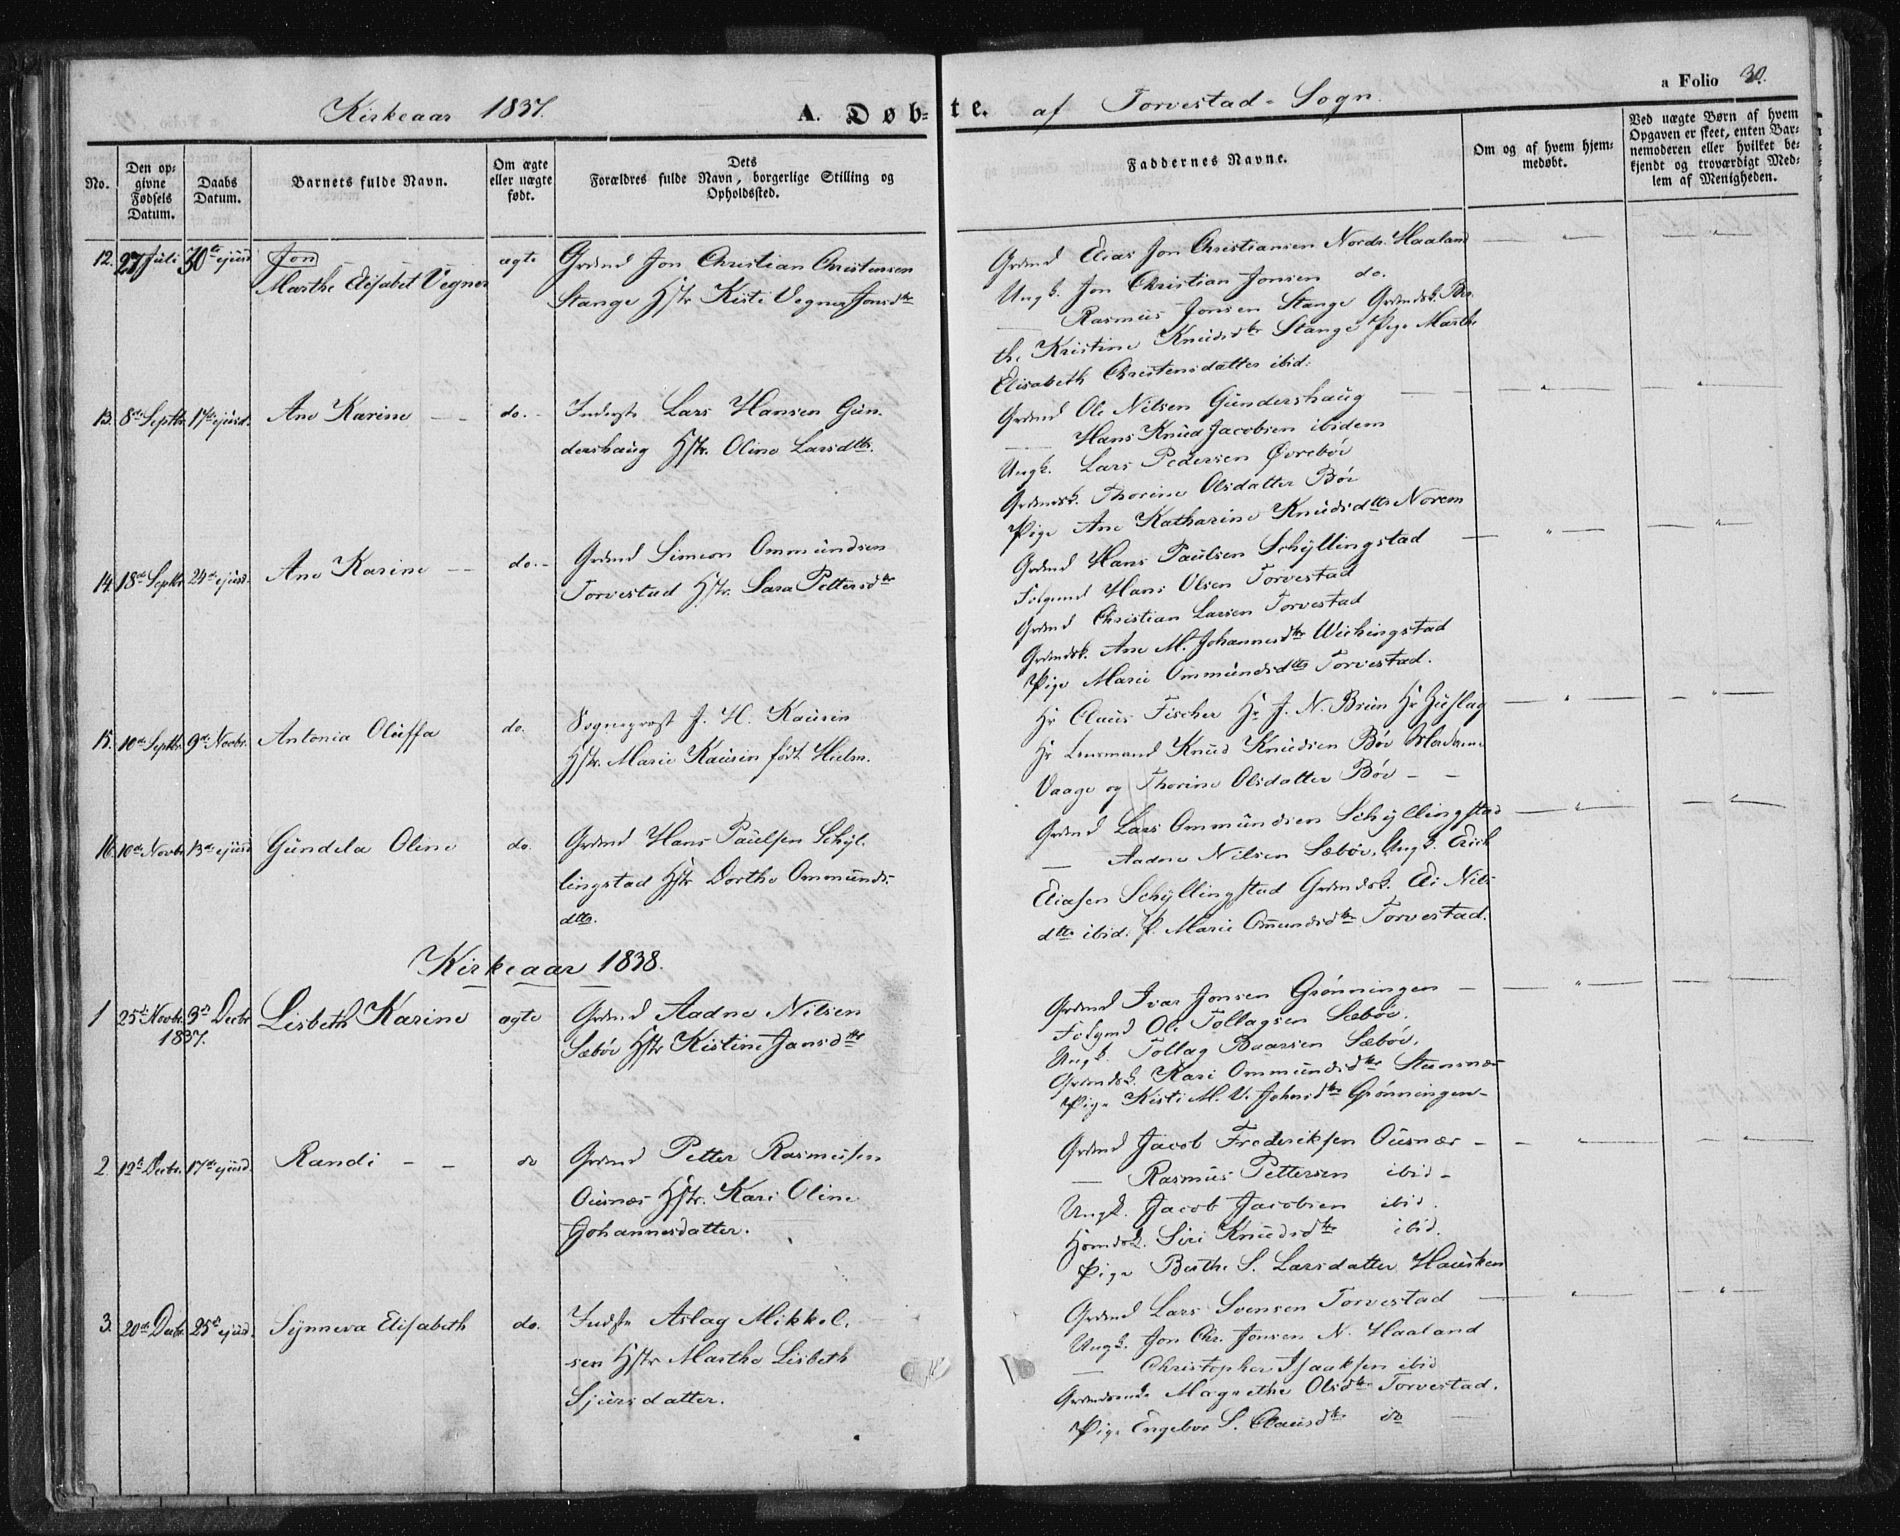 Kirkeaar 1837.
A. Døbte. af Torvestad-Sogn.
a Folio 30.
No.
Den opgivne Fødsels Datum.
Daabs Datum.
Barnets fulde Navn.
Om ægte eller uægte født.
Dets Forældres fulde Navn, borgerlige Stilling og Opholdssted.
Faddernes Navne.
Om og af hvem hjemmedøbt.
Ved uægte Børn af hvem Opgaven er skeet, enten Barnemoderen eller hvilket bekjendt og troværdigt Medlem af Menigheden.
12. 27 Juli 30te ejusd
Jon
Marthe Elisabet Vegner
ægte
Grdmd Jon Christian Christensen
Stange Hstr Kisti Vegner Jonsdtr
Grdmd Elias Jon Christiansen Nordr. Haaland
Ungk. Jon Christian Jonsen do.
— Rasmus Jonsen Stange Grdmdsk. Ber
the Kristine Knudsdtr Stange Pige Marthe
Elisabeth Christensdatter ibid:
13. 8de Septbr 17de ejusd. Ane Karine — do. -
Inderste Lars Hansen Gun-
dershaug Hstr. Oline Larsdtr.
Grdmd Ole Nilsen Gundershaug
— Hans Knud Jacobsen ibidem
Ungk. Lars Pedersen Øvrebøe
Grdmdsk. Thorine Olsdatter Bøe
Pige Ane Katharine Knudsdtr Norem
14. 18de Septbr. 24de ejusd. Ane Karine — do. -
Grdmd Simeon Ommundsen
Torvestad Hstr. Sara Pettersdtr
Grdmd Hans Paulsen Schyllingstad
Folgemd Hans Olsen Torvestad
Grdmd Christian Larsen Torvestad
Grdmdsk. Ane M. Johannesdtr Weihingstad
Pige Marie Ommundsdtr Torvestad.
15. 10de Septbr. 9de Novbr. Antonia Oluffa do.
Sogneprest J. H. Kaurin
Hstr. Marie Kaurin født Hielm.
Hr Claus Fischer Hr J. N. Bruun Hr
Hr Lensmand Knud Knudsen Bøe Madame
Vaage og Thorine Olsdatter Bøe — —
16. 10de Novbr. 13de ejusd Gundela Oline do.
Grdmd Hans Paulsen Schyl-
lingstad Hstr Dorthe Ommunds-
dtr.
Grdmd Lars Ommundsen Schyllingstad
— Aadne Nilsen Sæbøe, Ungk. Erich
Eliasen Schyllingstad Grdmdsk. Eli Nils
dtr ibid. P. Marie Omundsdtr Torvestad.
Kirkeaar 1838.
1 25de Novbr. 3de Decbr
1837.
Lisbeth Karine ægte
Grdmd Aadne Nilsen
Sæbøe Hstr Kistine Jansdtr
Grdmd Ivar Jonsen Grønningen
Folgmd Ole Tollagsen Sæbøe.
Ungk. Tollag Baarsen Sæbøe.
Grdmdsk. Kari Ommundsdtr Stensnæs
Pige Kisti M. V. Johnsdtr Grønningen
2. 12te Decbr. 17de ejusd. Randi — — do
Grdmd Petter Rasmusen
Ousnæs Hstr. Kari Oline
Johannesdatter.
Grdmd Jacob Frederiksen Ousnæs —
— Rasmus Pettersen ibid -
Ungk. Jacob Jacobsen ibid.
Siri Knudsdtr ibid.
Pige Berthe S. Larsdatter Hausken
3. 20de Decbr. 25de ejusd. Synneva Elisabeth do.
Indste Aslag Mikkel-
sen Hstr Marthe Lisbeth
Sjursdatter.
Grdmd Lars Svensen Torvestad
Ungk. Jon Chr. Jonsen N. Haaland
— Christopher Isaaksen ibid
Magrethe Olsdtr Torvestad.
Pige Engebor S. Clausdtr do